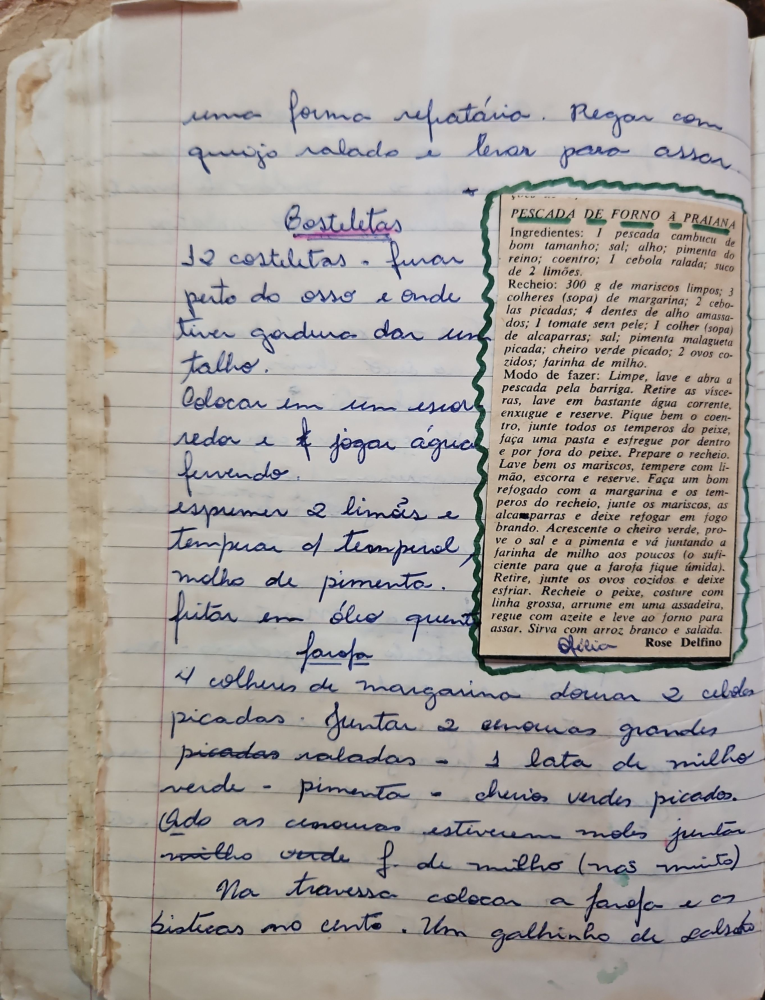 uma forma refratária. Regar com
queijo ralado e levar para assar.
Costeletas
12 costeletas - furar
perto do osso e onde
tiver gordura dar um
talho.
Colocar em um escor
redor e jogar água
fervendo.
espremer 2 limões e
temperar c/ temperol,
molho de pimenta.
fritar em óleo quent
farofa
4 colheres de margarina dourar 2 cebolas
picadas. Juntar 2 cenouras grandes
picadas raladas - 1 lata de milho
verde - pimenta - cheiros verdes picados.
Qdo as cenouras estiverem moles juntar
milho verde f. de milho (não muito)
Na travessa colocar a farofa e as
bistecas no cento. Um galhinho de salsão
PESCADA DE FORNO À PRAIANA
Ingredientes: 1 pescada cambucu de
bom tamanho; sal; alho; pimenta do
reino; coentro; 1 cebola ralada; suco
de 2 limões.
Recheio: 300 g de mariscos limpos; 3
colheres (sopa) de margarina; 2 cebo-
las picadas; 4 dentes de alho amassa-
dos; 1 tomate sem pele; 1 colher (sopa)
de alcaparras; sal; pimenta malagueta
picada; cheiro verde picado; 2 ovos co-
zidos; farinha de milho.
Modo de fazer: Limpe, lave e abra a
pescada pela barriga. Retire as vísce-
ras, lave em bastante água corrente,
enxugue e reserve. Pique bem o coen-
tro, junte todos os temperos do peixe,
faça uma pasta e esfregue por dentro
e por fora do peixe. Prepare o recheio.
Lave bem os mariscos, tempere com li-
mão, escorra e reserve. Faça um bom
refogado com a margarina e os tem-
peros do recheio, junte os mariscos, as
alcaparras e deixe refogar em fogo
brando. Acrescente o cheiro verde, pro-
ve o sal e a pimenta e vá juntando a
farinha de milho aos poucos (o sufi-
ciente para que a farofa fique úmida).
Retire, junte os ovos cozidos e deixe
esfriar. Recheie o peixe, costure com
linha grossa, arrume em uma assadeira,
regue com azeite e leve ao forno para
assar. Sirva com arroz branco e salada.
Ofélia Rose Delfino